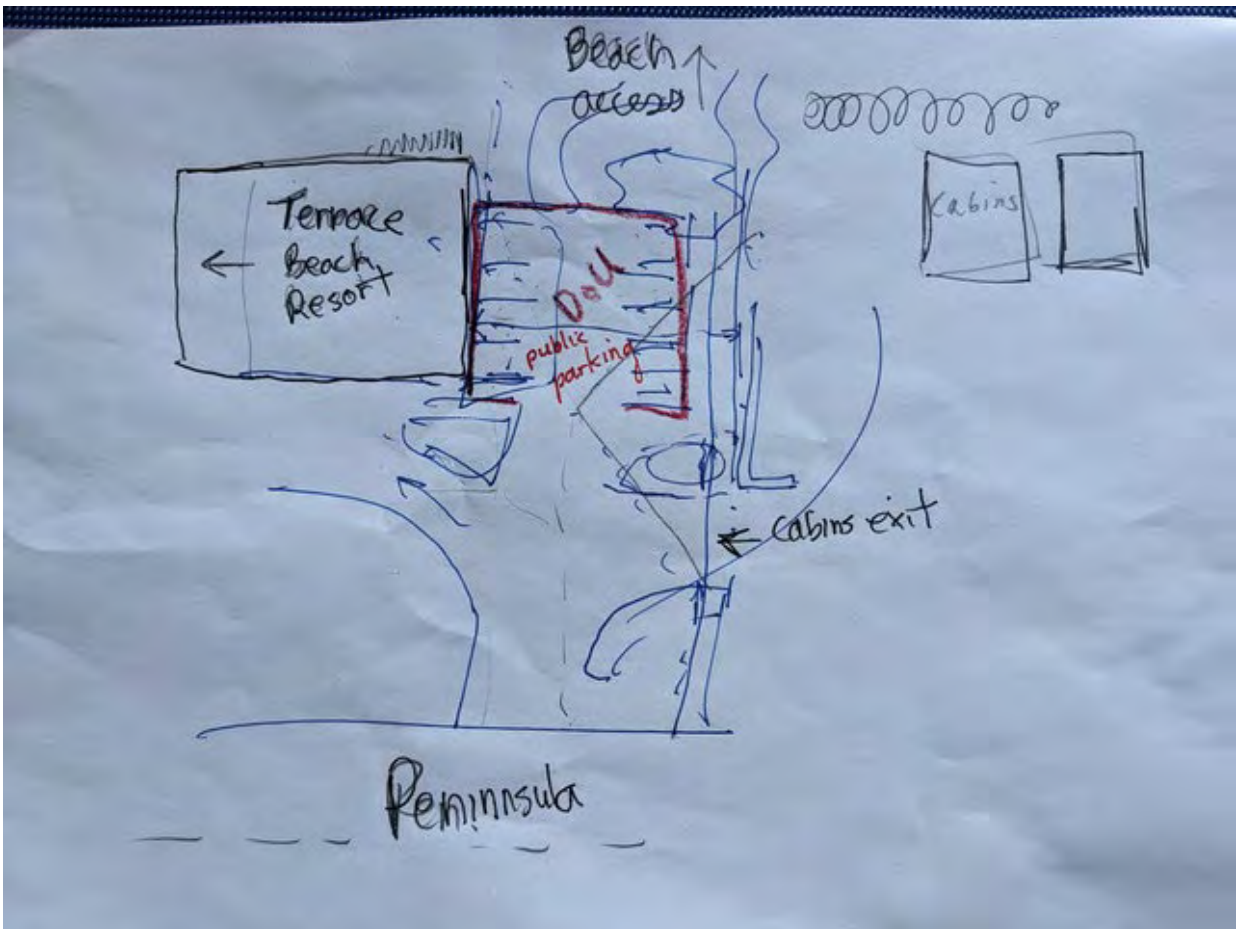 Beach
access
Terrace
Beach
Resort
D.o.U
public
parking
Cabins
Cabins exit
Peninnsula